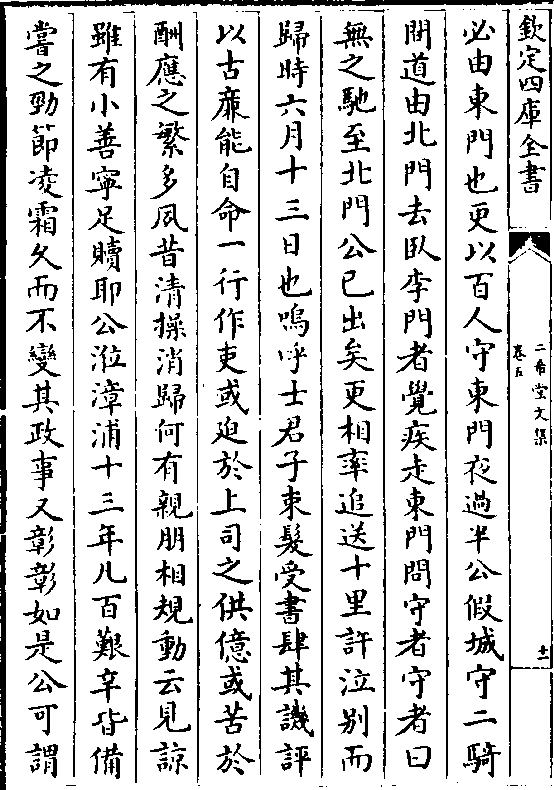 欽定四庫全書
二希堂文集
卷五
十一
必由東門也更以百人守東門夜過半公假城守二騎
間道由北門去臥李門者覺疾走東門問守者守者曰
無之馳至北門公已出矣更相率追送十里許泣别而
歸時六月十三日也嗚呼士君子束髮受書肆其譏評
以古廉能自命一行作吏或廹於上司之供億或苦於
酬應之繁多夙昔清操消歸何有親朋相規動云見諒
雖有小善寜足贖耶公涖漳浦十三年凡百艱辛皆備
嘗之勁節凌霜久而不變其政事又彰彰如是公可謂